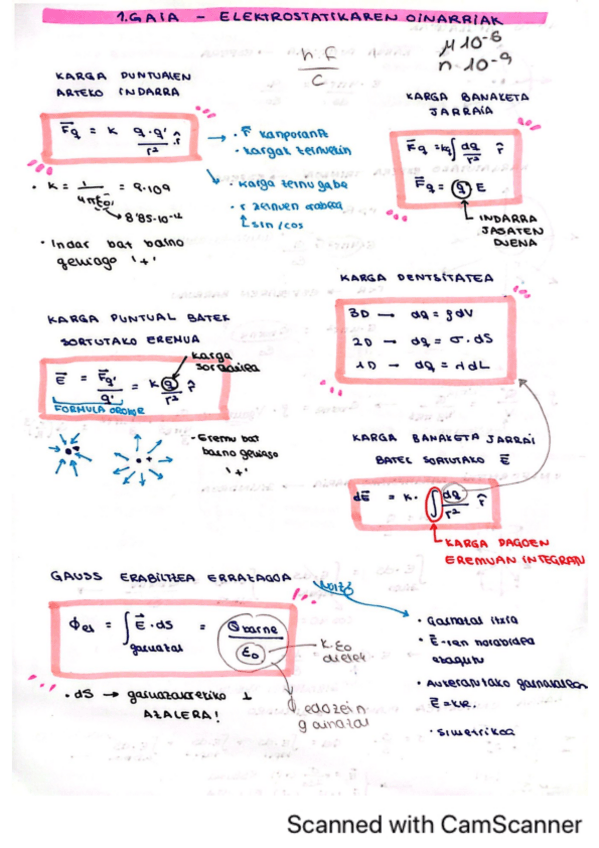 1.GAIA - ELEKTROSTATIKAREN OINARRIAK
hf
c
μ 10-6
n 10-9
KARGA PUNTUALEN
ARTEKO INDARRA
F⃗q = k q·q' / r² r̂
→ · r̂ kanporantz
· kargak zeinuekin
· karga zeinu gabe
· r zeinuen arabera
sin/cos
· K = 1 / 4πε0 = 9·109
8'85·10-12
· Indar bat baino
gehiago '+'
KARGA BANAKETA
JARRAIA
F⃗q = kq ∫ dq / r² r̂
F⃗q = q E
INDARRA
JASATEN
DUENA
KARGA DENTSITATEA
3D → dq = ρdV
2D → dq = σ·dS
1D → dq = λdL
KARGA PUNTUAL BATEK
SORTUTAKO EREMUA
karga
sortzailea
E⃗ = F⃗q' / q' = k q / r² r̂
FORMULA OROKOR
- Eremu bat
baino gehiago
'+'
KARGA BANAKETA JARRAI
BATEK SORTUTAKO E⃗
dE⃗ = K· ∫ dq / r² r̂
KARGA DAGOEN
EREMUAN INTEGRATU
GAUSS ERABILTZEA ERRAZAGOA
NOIZ?
Φes = ∫ E⃗·dS = Qbarne / ε0
gainazal
K·ε0
dielek
edozein
gainazal
· dS → gainazalarekiko ⊥
AZALERA!
· Gainazal itxia
· E⃗-ren norabidea
ezagutu
· Aukeratutako gainazalean
E⃗ = kte.
· SIMETRIKOA
Scanned with CamScanner